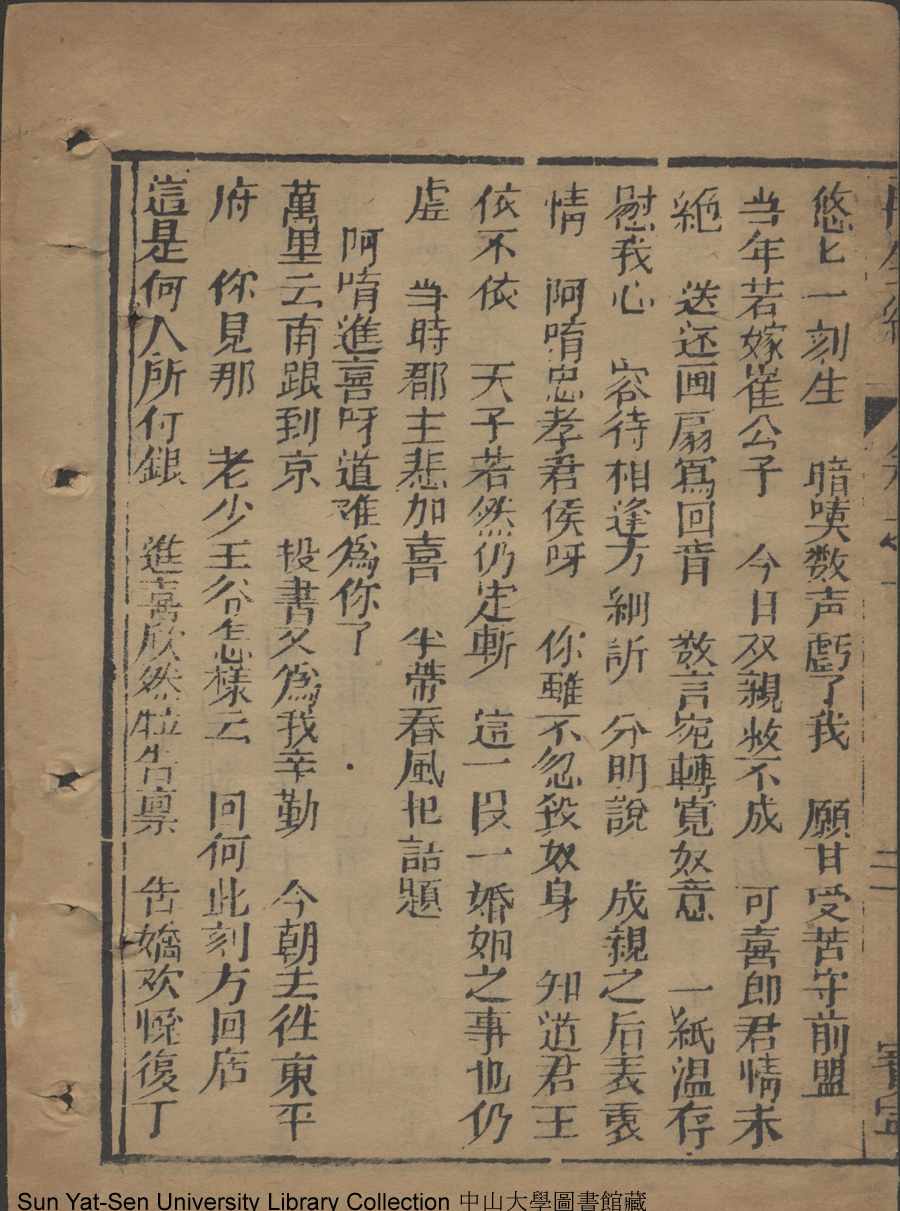 悠匕一刻生　暗嘆数声虧了我　願甘受苦守前盟
当年若嫁崔公子　今日双親救不成　可喜郎君情未
絶　送还画扇寫回音　数言宛轉寛奴意　一紙温存
慰我心　容待相逢方細訴　分明說　成親之后表衷
情　阿唷忠孝君侯呀　你雖不忽殺奴身　知道君王
依不依　天子若然仍定斬　這一段一婚姻之事也仍
虚　当時郡主悲加喜　半帶春風把話題
阿唷進喜呀道难為你了
萬里云南跟到京　投書又為我辛勤　今朝去徃東平
府　你見那　老少王爷怎樣云　回何此刻方回店
這是何人所付銀　進喜欣然告禀　告嬌欢恠復丁
Sun Yat-Sen University Library Collection 中山大學圖書館藏